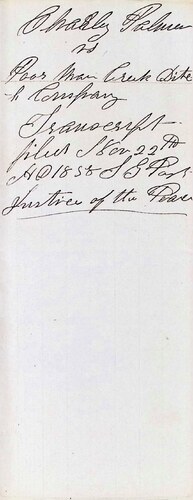 Palmer
vs
Poor Man Creek Ditc
h Company
Transcript
filed Nov 22nd
AD 1858 S E
Justice of the Peace